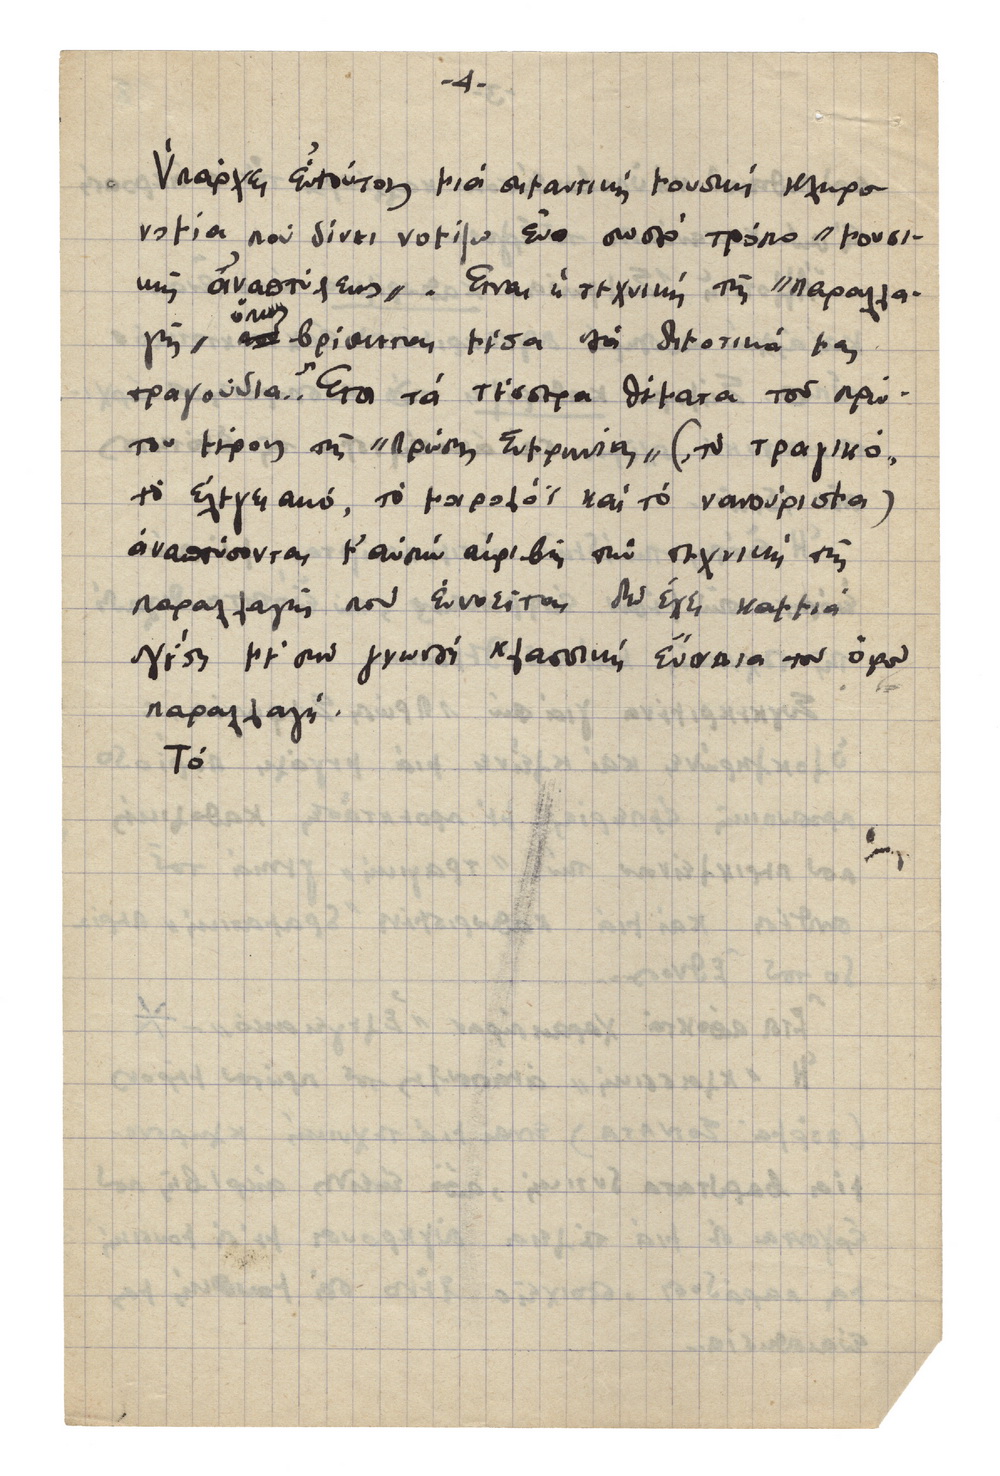 -4-
Ὑπάρχει ἐντούτοις μιά σημαντική μουσική κληρο
νομία πού δίνει νομίζω ἕνα σωστό τρόπο „μουσι-
κῆς ἀναπτύξεως„. Εἶναι ἡ τεχνική τῆς „παραλλα-
γῆς„ ὅπως βρίσκεται μέσα στά δημοτικά μας
τραγούδια. Ἔτσι τά τέσσερα θέματα τοῦ πρώ-
του μέρους τῆς „Πρώτης Συμφωνίας„ (τό τραγικό,
τό ἐλεγειακό, τό μοιρολόϊ καί τό νανούρισμα)
ἀναπτύσσονται μ' αὐτήν ἀκριβῶς τήν τεχνική τῆς
παραλλαγῆς πού ἐννοεῖται δέν ἔχει καμμιά
σχέση μέ τήν γνωστή κλασσική ἔννοια τοῦ ὅρου
παραλλαγή.
Τό